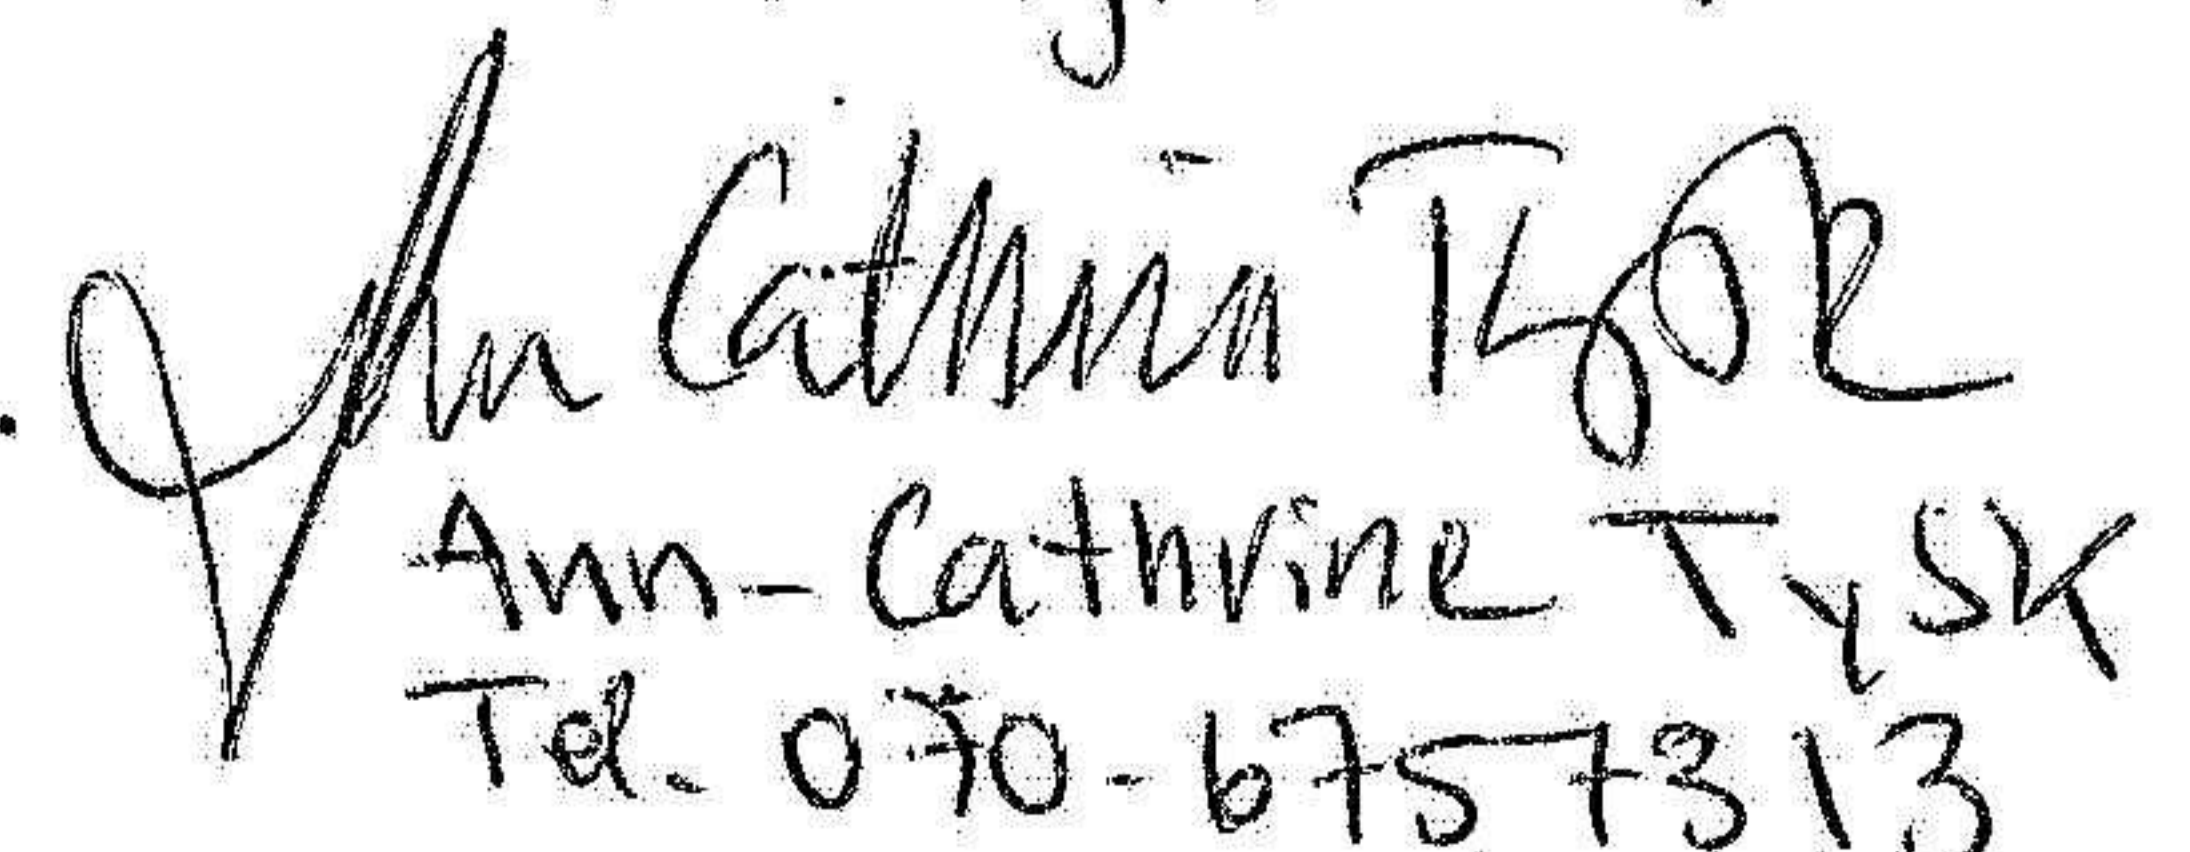 Ann Cathrin Tysk
Ann-Cathrine Tysk
Tel. 070-6757313